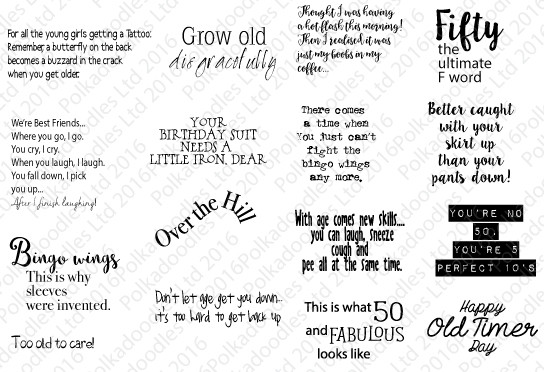 For all the young girls getting a Tattoo:
Remember, a butterfly on the back
becomes a buzzard in the crack
when you get older.
We're Best Friends...
Where you go, I go.
You cry, I cry.
When you laugh, I laugh.
You fall down, I pick
you up...
After I finish laughing!
Bingo wings
This is why
sleeves
were invented.
Too old to care!
Grow old
disgracefully
YOUR
BIRTHDAY SUIT
NEEDS A
LITTLE IRON, DEAR
Over the Hill
Don't let age get you down...
it's too hard to get back up
Thought I was having
a hot flash this morning!
Then I realised it was
just my boobs in my
coffee...
There comes
a time when
You just can't
fight the
bingo wings
any more.
With age comes new skills....
you can laugh, sneeze
cough and
pee all at the same time.
This is what 50
and FABULOUS
looks like
Fifty
the
ultimate
F word
Better caught
with your
skirt up
than your
pants down!
YOU'RE NO
50,
YOU'RE 5
PERFECT 10'S
Happy
Old Timer
Day